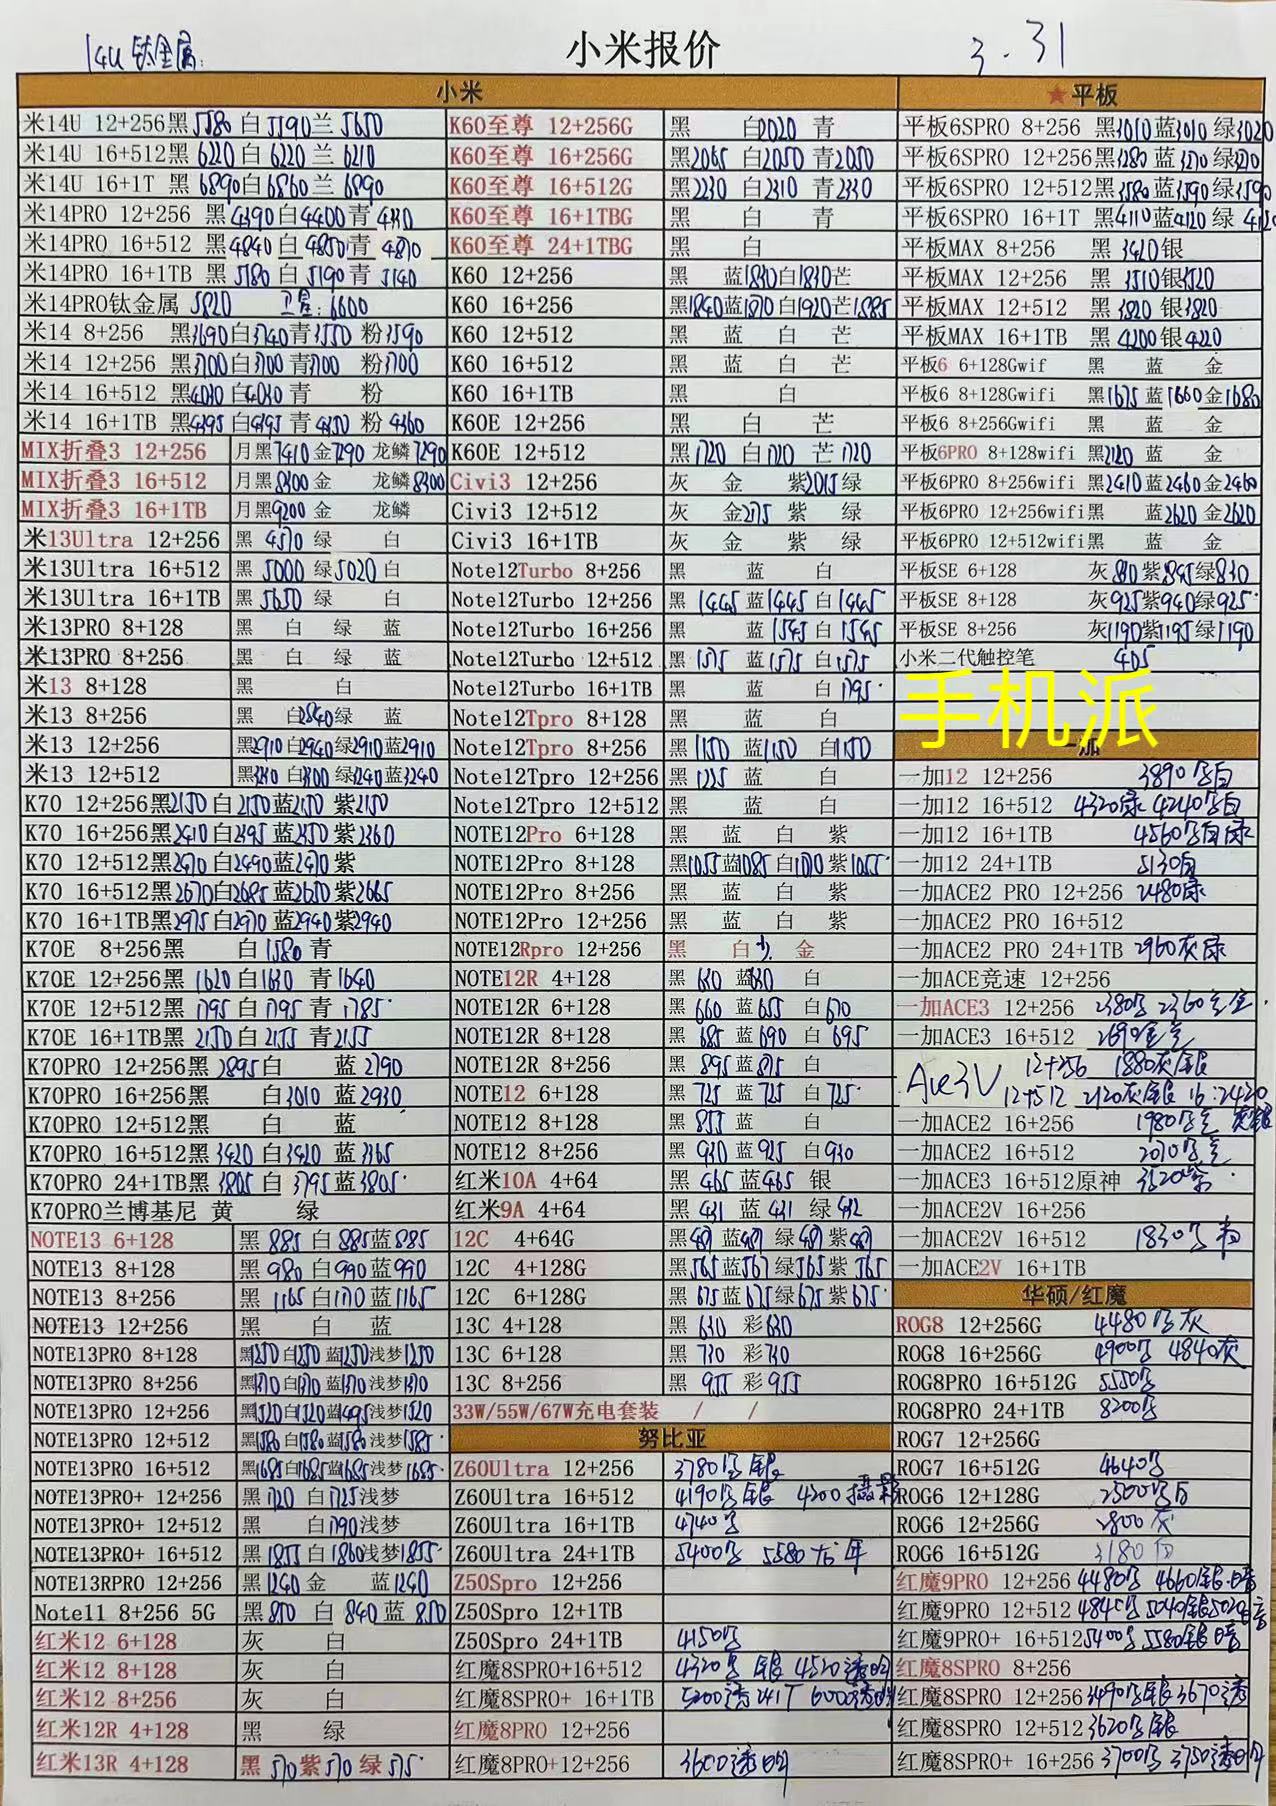 14U 钛金属:
小米报价
3.31
小米
米14U 12+256黑5580 白5590兰5650
米14U 16+512黑6220 白6220 兰6210
米14U 16+1T 黑6890白6860 兰6890
米14PRO 12+256 黑4390白4400青4330
米14PRO 16+512 黑4840白4850青 4870
米14PRO 16+1TB 黑5180 白5190青 5140
米14PRO钛金属 5820 卫星:6600
米14 8+256 黑3690白3740青3550 粉3590
米14 12+256 黑3700白3700 青3700 粉3700
米14 16+512 黑4030白4030青 粉
米14 16+1TB 黑4395白4395青4350粉4360
MIX折叠3 12+256 月黑7410金7290 龙鳞7290
MIX折叠3 16+512 月黑8300金 龙鳞8300
MIX折叠3 16+1TB 月黑9200金 龙鳞
米13Ultra 12+256 黑 4570绿 白
米13Ultra 16+512 黑 5000绿5020白
米13Ultra 16+1TB 黑 5650绿 白
米13PRO 8+128 黑 白 绿 蓝
米13PRO 8+256 黑 白 绿 蓝
米13 8+128 黑 白
米13 8+256 黑 白2540绿 蓝
米13 12+256 黑2910白2940绿2910蓝2910
米13 12+512 黑 白 绿3240蓝3240
K70 12+256黑2150白2150蓝2150 紫2150
K70 16+256黑2410白2395蓝2350紫2360
K70 12+512黑2470白2490蓝2470紫
K70 16+512黑2670白2685蓝2650紫2665
K70 16+1TB黑2975白2970蓝2940紫2940
K70E 8+256黑 白1580青
K70E 12+256黑 1620白1630 青1640
K70E 12+512黑 1795白1795青1785
K70E 16+1TB黑 2150白2155青2155
K70PRO 12+256黑 2895白 蓝2790
K70PRO 16+256黑 白3010 蓝2930
K70PRO 12+512黑 白 蓝
K70PRO 16+512黑3420 白3420 蓝3365
K70PRO 24+1TB黑3805白 3795蓝3805
K70PRO兰博基尼 黄 绿
NOTE13 6+128 黑 885 白 885蓝885
NOTE13 8+128 黑 980 白990蓝990
NOTE13 8+256 黑 1165白1170蓝1165
NOTE13 12+256 黑 白 蓝
NOTE13PRO 8+128 黑1250白1250 蓝1250浅梦1250
NOTE13PRO 8+256 黑1370白1370 蓝1370浅梦1370
NOTE13PRO 12+256 黑1520白1520蓝1495浅梦1520
NOTE13PRO 12+512 黑1580白1580蓝1580浅梦1585
NOTE13PRO 16+512 黑1685白1685蓝1685浅梦1685
NOTE13PRO+ 12+256 黑1720 白1725浅梦
NOTE13PRO+ 12+512 黑 白1790浅梦
NOTE13PRO+ 16+512 黑1855白1860浅梦1855
NOTE13RPRO 12+256 黑1240金 蓝1240
Note11 8+256 5G 黑850 白 840 蓝 850
红米12 6+128 灰 白
红米12 8+128 灰 白
红米12 8+256 灰 白
红米12R 4+128 黑 绿
红米13R 4+128 黑 570紫570 绿 575
K60至尊 12+256G 黑 白2020 青
K60至尊 16+256G 黑2065 白2050 青2050
K60至尊 16+512G 黑2230 白2310 青2330
K60至尊 16+1TBG 黑 白 青
K60至尊 24+1TBG 黑 白
K60 12+256 黑 蓝1830白1830芒
K60 16+256 黑1840蓝1870白1920芒1885
K60 12+512 黑 蓝 白 芒
K60 16+512 黑 蓝 白 芒
K60 16+1TB 黑 白
K60E 12+256 黑 白 芒
K60E 12+512 黑1720 白1720 芒1720
Civi3 12+256 灰 金 紫2015绿
Civi3 12+512 灰 金2175 紫 绿
Civi3 16+1TB 灰 金 紫 绿
Note12Turbo 8+256 黑 蓝 白
Note12Turbo 12+256 黑 1445蓝1445 白1445
Note12Turbo 16+256 黑 蓝1545白1545
Note12Turbo 12+512 黑 1575 蓝1575 白1575
Note12Turbo 16+1TB 黑 蓝 白1795
Note12Tpro 8+128 黑 蓝 白
Note12Tpro 8+256 黑1150 蓝1150 白1150
Note12Tpro 12+256 黑1225 蓝 白
Note12Tpro 12+512 黑 蓝 白
NOTE12Pro 6+128 黑 蓝 白 紫
NOTE12Pro 8+128 黑1055蓝1085白1070紫1055
NOTE12Pro 8+256 黑 蓝 白 紫
NOTE12Pro 12+256 黑 蓝 白 紫
NOTE12Rpro 12+256 黑 白 金
NOTE12R 4+128 黑 630 蓝630 白
NOTE12R 6+128 黑 660 蓝655 白670
NOTE12R 8+128 黑 685 蓝690 白695
NOTE12R 8+256 黑 895蓝875 白
NOTE12 6+128 黑 725 蓝 725 白725
NOTE12 8+128 黑 855 蓝 白
NOTE12 8+256 黑 930 蓝925 白930
红米10A 4+64 黑 465 蓝465 银
红米9A 4+64 黑 431 蓝 431 绿432
12C 4+64G 黑487蓝487 绿487紫487
12C 4+128G 黑565蓝567绿565紫565
12C 6+128G 黑675蓝675绿675紫675
13C 4+128 黑 630 彩630
13C 6+128 黑 730 彩730
13C 8+256 黑 955 彩955
33W/55W/67W充电套装 / /
努比亚
Z60Ultra 12+256 3780黑 银
Z60Ultra 16+512 4190黑银 4200摄影
Z60Ultra 16+1TB 4740黑
Z60Ultra 24+1TB 5400黑 5580龙年
Z50Spro 12+256
Z50Spro 12+1TB
Z50Spro 24+1TB 4150黑
红魔8SPRO+16+512 4320黑 银 4520透明
红魔8SPRO+ 16+1TB 5200透 24+1T 6000透明
红魔8PRO 12+256
红魔8PRO+12+256 3600透明
★平板
平板6SPRO 8+256 黑3010蓝3010 绿3020
平板6SPRO 12+256黑3280蓝3270绿3270
平板6SPRO 12+512黑3580蓝3590绿3590
平板6SPRO 16+1T 黑4110蓝4120 绿 4120
平板MAX 8+256 黑 3420银
平板MAX 12+256 黑 3510银3520
平板MAX 12+512 黑 3820 银3820
平板MAX 16+1TB 黑 4200银4220
平板6 6+128Gwif 黑 蓝 金
平板6 8+128Gwifi 黑1675蓝1660金1680
平板6 8+256Gwifi 黑 蓝 金
平板6PRO 8+128wifi 黑2120 蓝 金
平板6PRO 8+256wifi 黑2410蓝2460金2460
平板6PRO 12+256wifi黑 蓝2620金2620
平板6PRO 12+512wifi黑 蓝 金
平板SE 6+128 灰830紫845绿830
平板SE 8+128 灰925紫940绿925
平板SE 8+256 灰1190紫1195绿1190
小米二代触控笔 405
手机派
一加
一加12 12+256 3890黑白
一加12 16+512 4320绿 4240黑白
一加12 16+1TB 4560黑白绿
一加12 24+1TB 5130白
一加ACE2 PRO 12+256 2480绿
一加ACE2 PRO 16+512
一加ACE2 PRO 24+1TB 2960灰绿
一加ACE竞速 12+256
一加ACE3 12+256 2380黑 2360金
一加ACE3 16+512
Ace3V 12+256 1880灰银
12+512 2120灰银 16:2420灰银
一加ACE2 16+256 1980黑
一加ACE2 16+512 2070黑
一加ACE3 16+512原神 3520紫
一加ACE2V 16+256
一加ACE2V 16+512 1830黑
一加ACE2V 16+1TB
华硕/红魔
ROG8 12+256G 4480黑灰
ROG8 16+256G 4900黑 4840灰
ROG8PRO 16+512G 5550黑
ROG8PRO 24+1TB 8200黑
ROG7 12+256G
ROG7 16+512G 4640黑
ROG6 12+128G 2500黑白
ROG6 12+256G 2800灰
ROG6 16+512G 3180白
红魔9PRO 12+256 4480黑 4660银 暗
红魔9PRO 12+512 4845黑5040银5020暗
红魔9PRO+ 16+512 5400黑5580银暗
红魔8SPRO 8+256
红魔8SPRO 12+256 3490黑银3670透
红魔8SPRO 12+512 3620黑银
红魔8SPRO+ 16+256 3700黑 3750透明